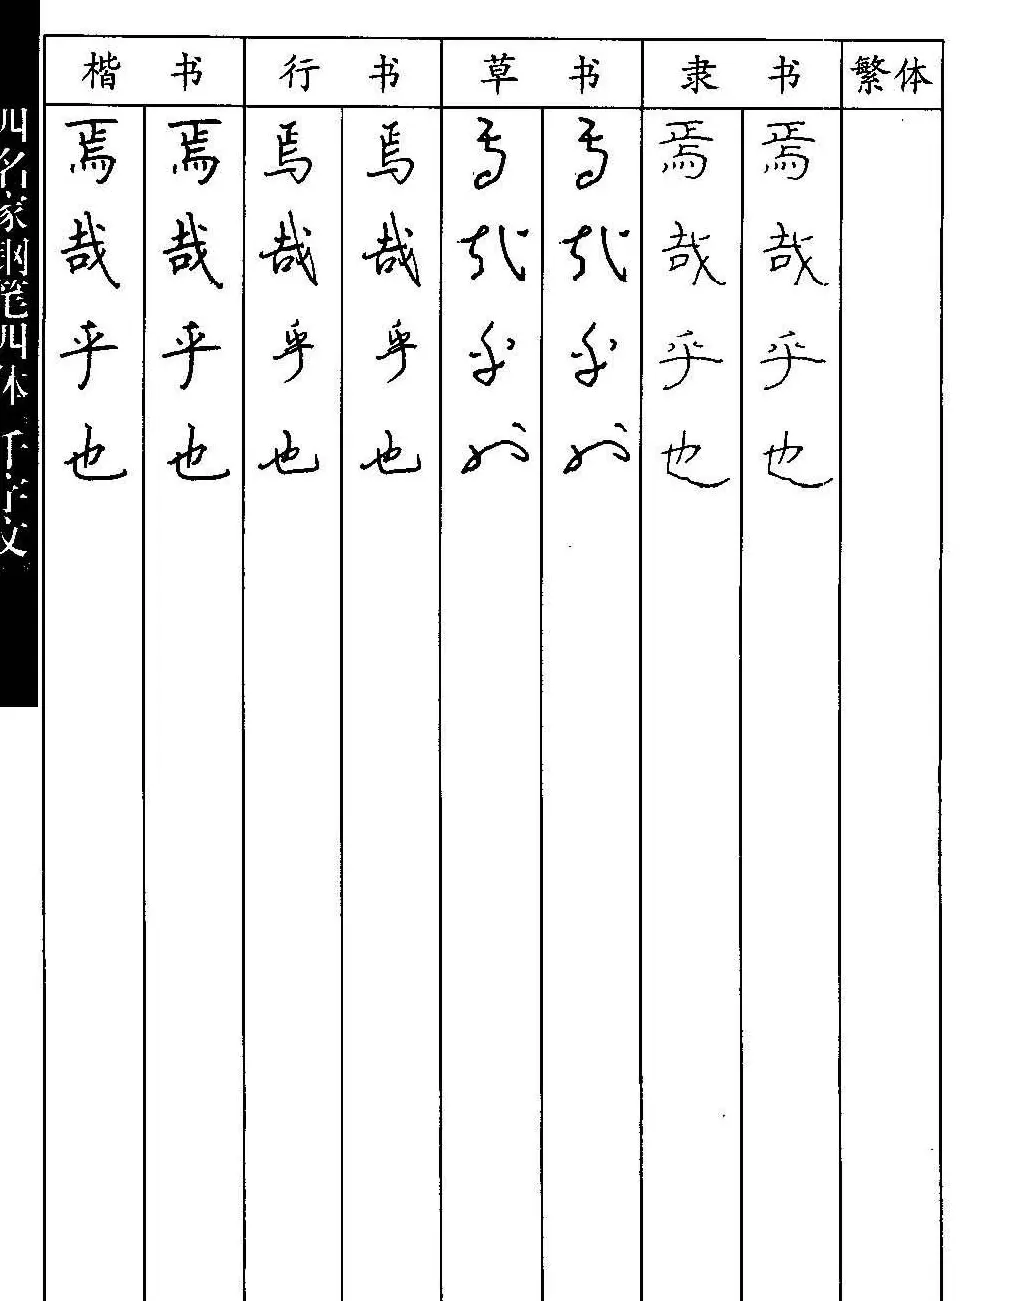 楷书 行书 草书 隶书 繁体
焉 焉 焉 焉 焉 焉 焉 焉
哉 哉 哉 哉 哉 哉 哉 哉
乎 乎 乎 乎 乎 乎 乎 乎
也 也 也 也 也 也 也 也
四名家钢笔四体千字文